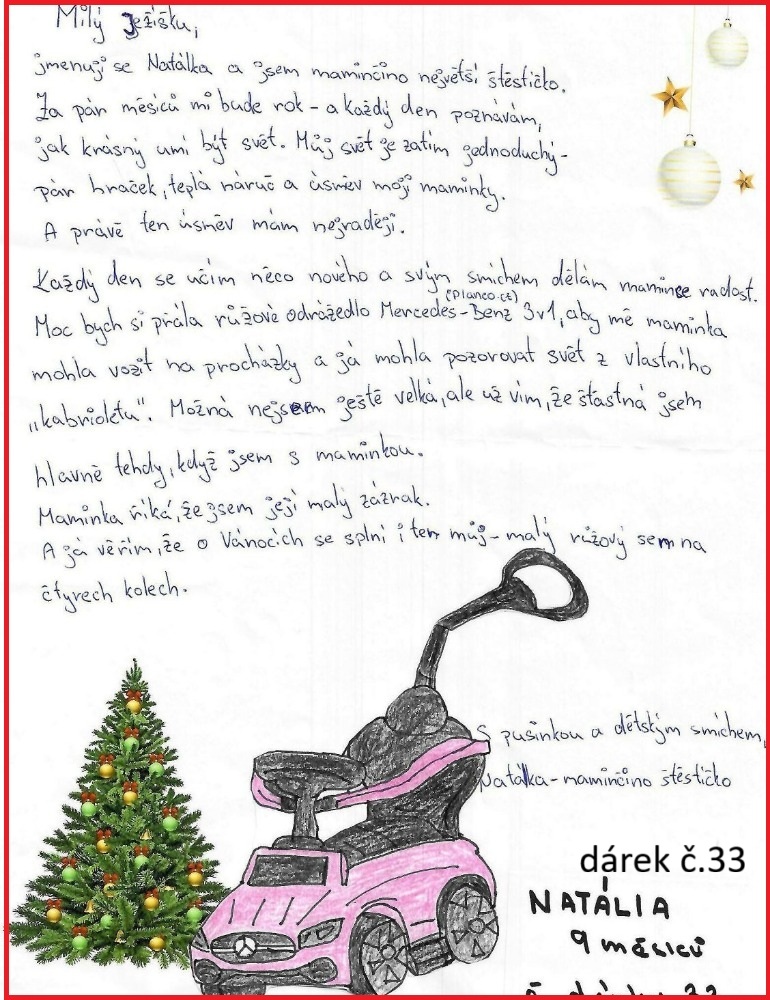 Milý Ježíšku,
jmenuji se Natálka a jsem maminčino největší štěstíčko.
Za pár měsíců mi bude rok - a každý den poznávám,
jak krásný umí být svět. Můj svět je zatím jednoduchý -
pár hraček, teplá náruč a úsměv mojí maminky.
A právě ten úsměv mám nejraději.
Každý den se učím něco nového a svým smíchem dělám mamince radost.
(Planeo.cz)
Moc bych si přála růžové odrážedlo Mercedes-Benz 3v1, aby mě maminka
mohla vozit na procházky a já mohla pozorovat svět z vlastního
„kabrioletu“. Možná nejsem ještě velká, ale už vím, že šťastná jsem
hlavně tehdy, když jsem s maminkou.
Maminka říká, že jsem její malý zázrak.
A já věřím, že o Vánocích se splní i ten můj - malý růžový sen na
čtyrech kolech.
S pusinkou a dětským smíchem,
Natálka - maminčino štěstíčko
dárek č.33
NATÁLIA
9 měsíců